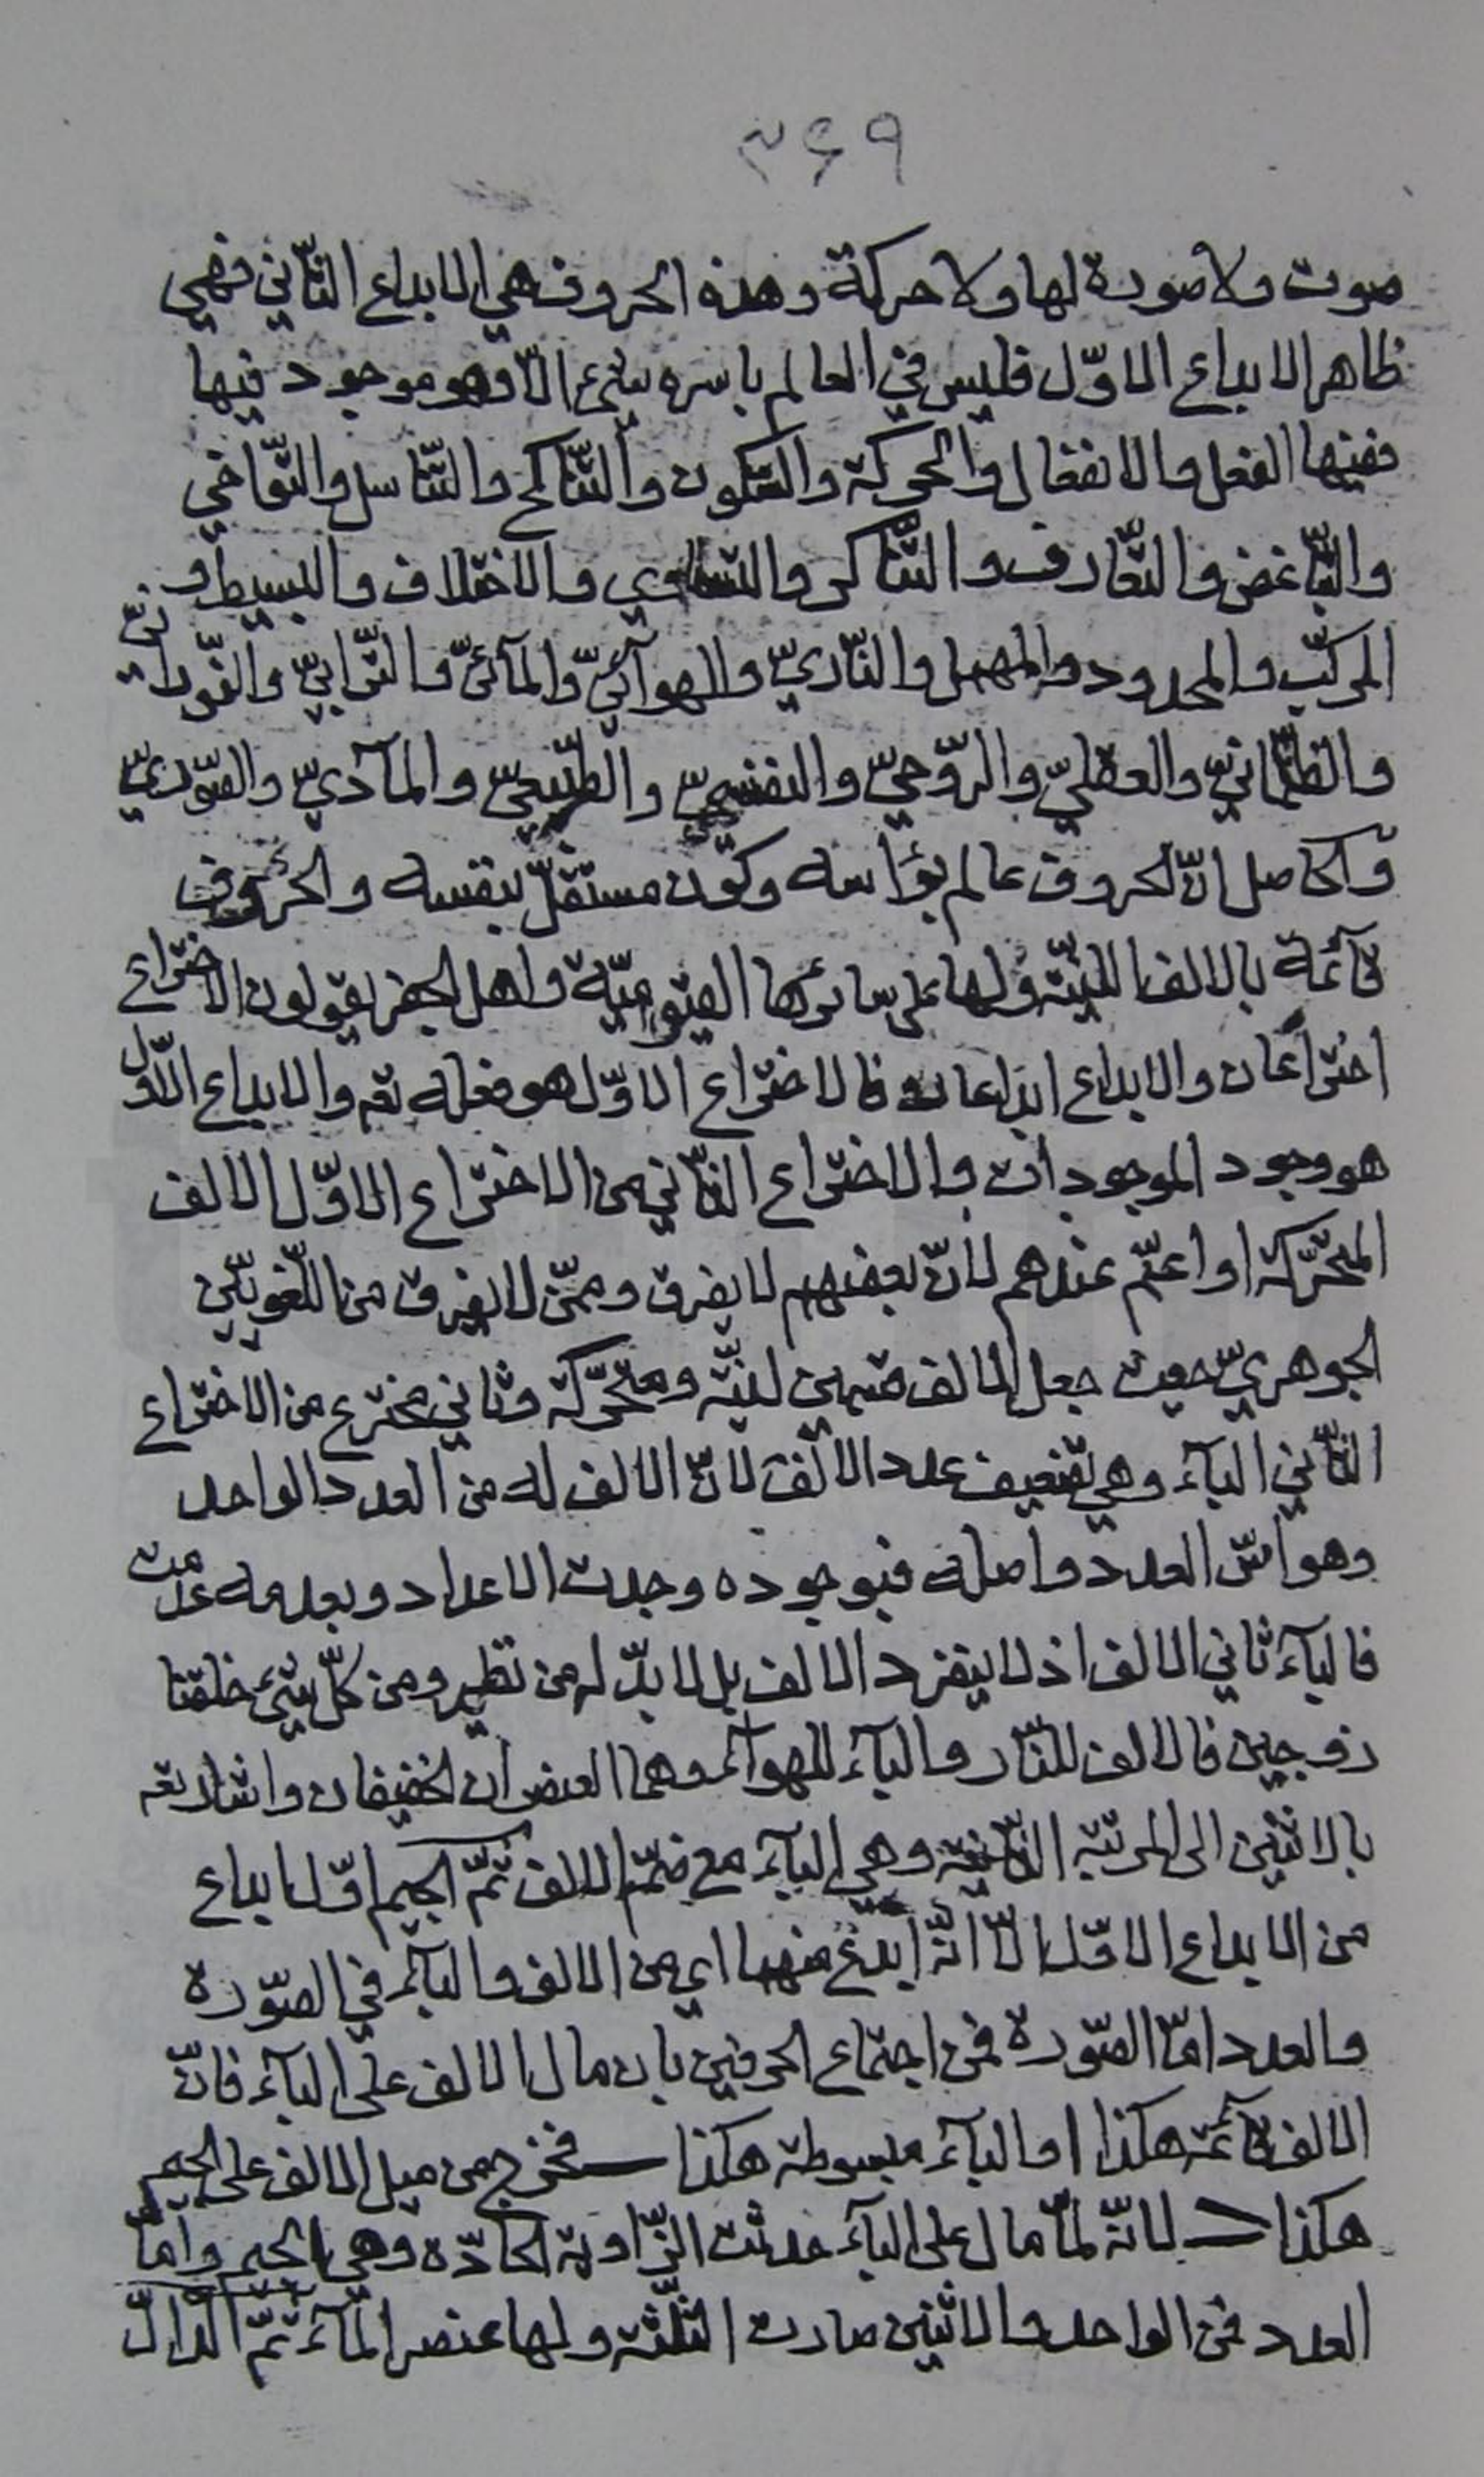 ۳۶۹
صوت ولا صورة لها ولا حركة وهذه الحروف هي الابداع الثّاني فهي
ظاهر الابداع الاوّل فليس في العالم باسره شئ الّا وهو موجود فيها
ففيها الفعل والانفعال والحركة والسّكون والتّناكح والتّناسل والتّواخي
والتّباغض والتّعارف والتّناكر والتّساوي والاختلاف والبسيط و
المركّب والمحدود والمهمل والنّاريّ والهوآئيّ والمآئيّ والتّرابيّ والنّورانيّ
والظّلمانيّ والعقليّ والرّوحيّ والنفسيّ والطّبيعيّ والمآديّ والصّوريّ
والحاصل انّ الحروف عالم برأسه وكون مستقلّ بنفسه والحروف
قآئمة بالالف الليّنة ولها على سائرها القيّوميّة واهل الجفر يقولون الاختراع
اختراعان والابداع ابداعان فالاختراع الاوّل هو فعله تعم والابداع الاوّل
هو وجود الموجودات والاختراع الثّاني من الاختراع الاوّل الالف
المتحرّكة او اعمّ عندهم لانّ بعضهم لا يفرق وممّن لا يفرق من اللّغويّين
الجوهريّ حيث جعل الالف قسمين ليّنة ومتحرّكة وثاني مخترع من الاختراع
الثّاني البآء وهي تضعيف عدد الالف لانّ الالف له من العدد الواحد
وهو اسّ العدد واصله فبوجوده وجدت الاعداد وبعدمه عدمت
فالبآء ثاني الالف اذ لا ينفرد الالف بل لا بدّ له من نظير ومن كلّ شئ خلقنا
زوجين فالالف للنّار والبآء للهوآء وهما العنصران الخفيفان واشارته
بالاثنين الى المرتبة الثّانية وهي البآء مع ضمّ الالف ثمّ الجيم اوّل ابداع
من الابداع الاوّل الّا انّه ابدع منهما اي من الالف والبآء في الصّورة
والعدد امّا الصّورة فمن اجتماع الحرفين بان مال الالف على البآء فانّ
الالف قآئمة هكذا ا والبآء مبسوطة هكذا ـــ فخرج من ميل الالف على الجيم
هكذا لانّه لمّا مال على البآء حدثت الزّاوية الحادّة وهي الجيم وامّا
العدد فمن الواحد والاثنين صارت الثّلثة ولها عنصر المآء ثمّ الدّال